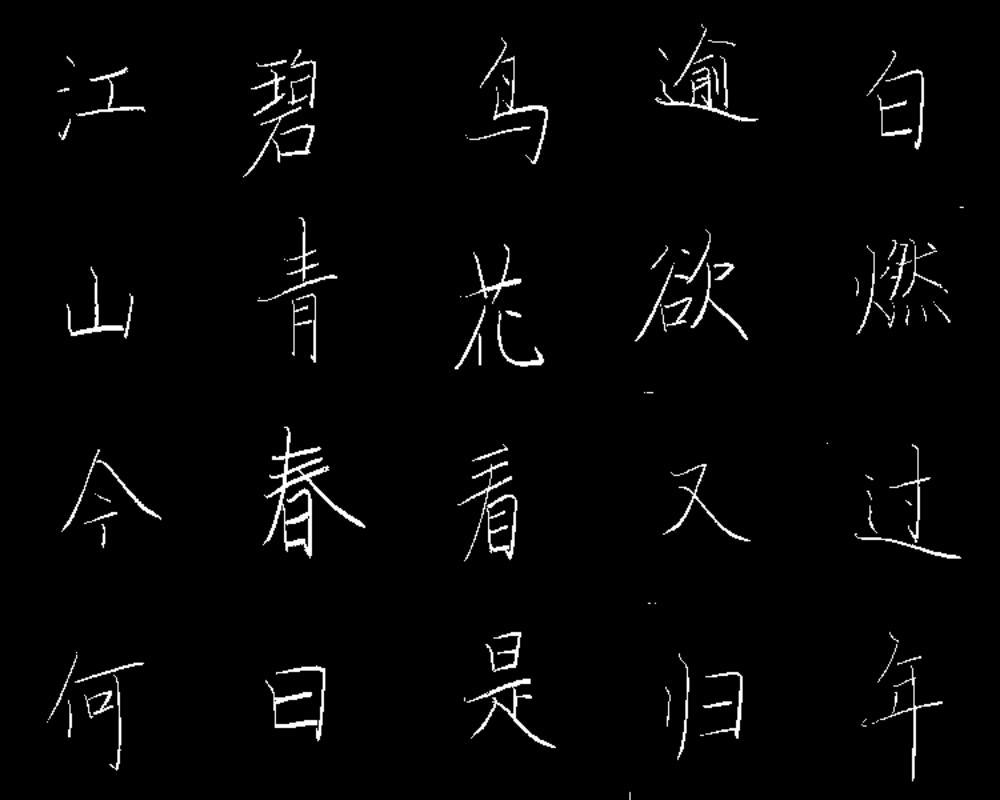 江碧鸟逾白
山青花欲燃
今春看又过
何日是归年